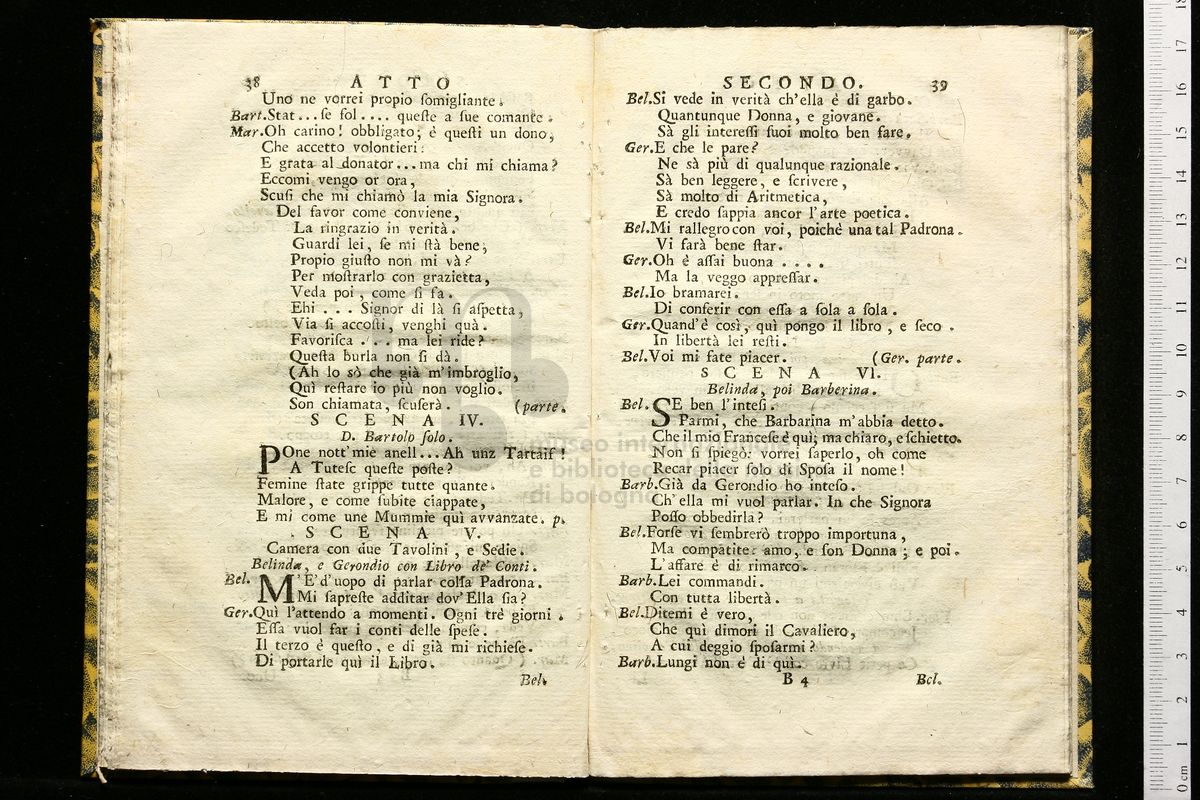 38 ATTO
Uno ne vorrei propio ſomigliante.
Bart.Stat...ſe ſol.... queſte a ſue comante.
Mar.Oh carino! obbligato; è queſti un dono,
Che accetto volontieri:
E grata al donator...ma chi mi chiama?
Eccomi vengo or ora,
Scuſi che mi chiamò la mia Signora.
Del favor come conviene,
La ringrazio in verità.
Guardi lei, ſe mi ſtà bene;
Propio giuſto non mi và?
Per moſtrarlo con grazietta,
Veda poi, come ſi fa.
Ehi . . . Signor di là ſi aſpetta,
Via ſi accoſti, venghi quà.
Favoriſca . . . ma lei ride?
Queſta burla non ſi dà.
(Ah lo sò che già m'imbroglio,
Quì reſtare io più non voglio.
Son chiamata, ſcuſerà. (parte.
SCENA IV.
D. Bartolo ſolo.
POne nott'mie anell...Ah unz Tartaif!
A Tuteſc queſte poſte?
Femine ſtate grippe tutte quante.
Malore, e come ſubite ciappate,
E mi come une Mummie quì avvanzate. p.
SCENA V.
Camera con due Tavolini, e Sedie.
Belinda, e Gerondio con Libro de' Conti.
Bel. M'E' d'uopo di parlar colſa Padrona.
Mi ſapreſte additar dov'Ella ſia?
Ger.Quì l'attendo a momenti. Ogni trè giorni
Eſſa vuol far i conti delle ſpeſe.
Il terzo è queſto, e di già mi richieſe.
Di portarle quì il Libro.
Bel.
SECONDO. 39
Bel.Si vede in verità ch'ella è di garbo.
Quantunque Donna, e giovane.
Sà gli intereſſi ſuoi molto ben fare.
Ger.E che le pare?
Ne sà più di qualunque razionale.
Sà ben leggere, e ſcrivere,
Sà molto di Aritmetica,
E credo ſappia ancor l'arte poetica.
Bel.Mi rallegro con voi, poichè una tal Padrona.
Vi farà bene ſtar.
Ger.Oh è aſſai buona . . . .
Ma la veggo appreſſar.
Bel.Io bramarei.
Di conferir con eſſa a ſola a ſola.
Ger.Quand'è così, quì pongo il libro, e ſeco.
In libertà lei reſti.
Bel.Voi mi fate piacer. (Ger. parte.
SCENA VI.
Belinda, poi Barberina.
Bel. SE ben l'inteſi.
Parmi, che Barbarina m'abbia detto.
Che il mio Franceſe è quì; ma chiaro, e ſchietto.
Non ſi ſpiegò: vorrei ſaperlo, oh come
Recar piacer ſolo di Spoſa il nome!
Barb.Già da Gerondio ho inteſo.
Ch'ella mi vuol parlar. In che Signora
Poſſo obbedirla?
Bel.Forſe vi ſembrerò troppo importuna,
Ma compatite: amo, e ſon Donna; e poi.
L'affare è di rimarco.
Barb.Lei commandi.
Con tutta libertà.
Bel.Ditemi è vero,
Che quì dimori il Cavaliero,
A cui deggio ſpoſarmi?
Barb.Lungi non è di quì.
B 4 Bel.
museo inter
e bibliotec
di bologna
0 cm 1 2 3 4 5 6 7 8 9 10 11 12 13 14 15 16 17 18